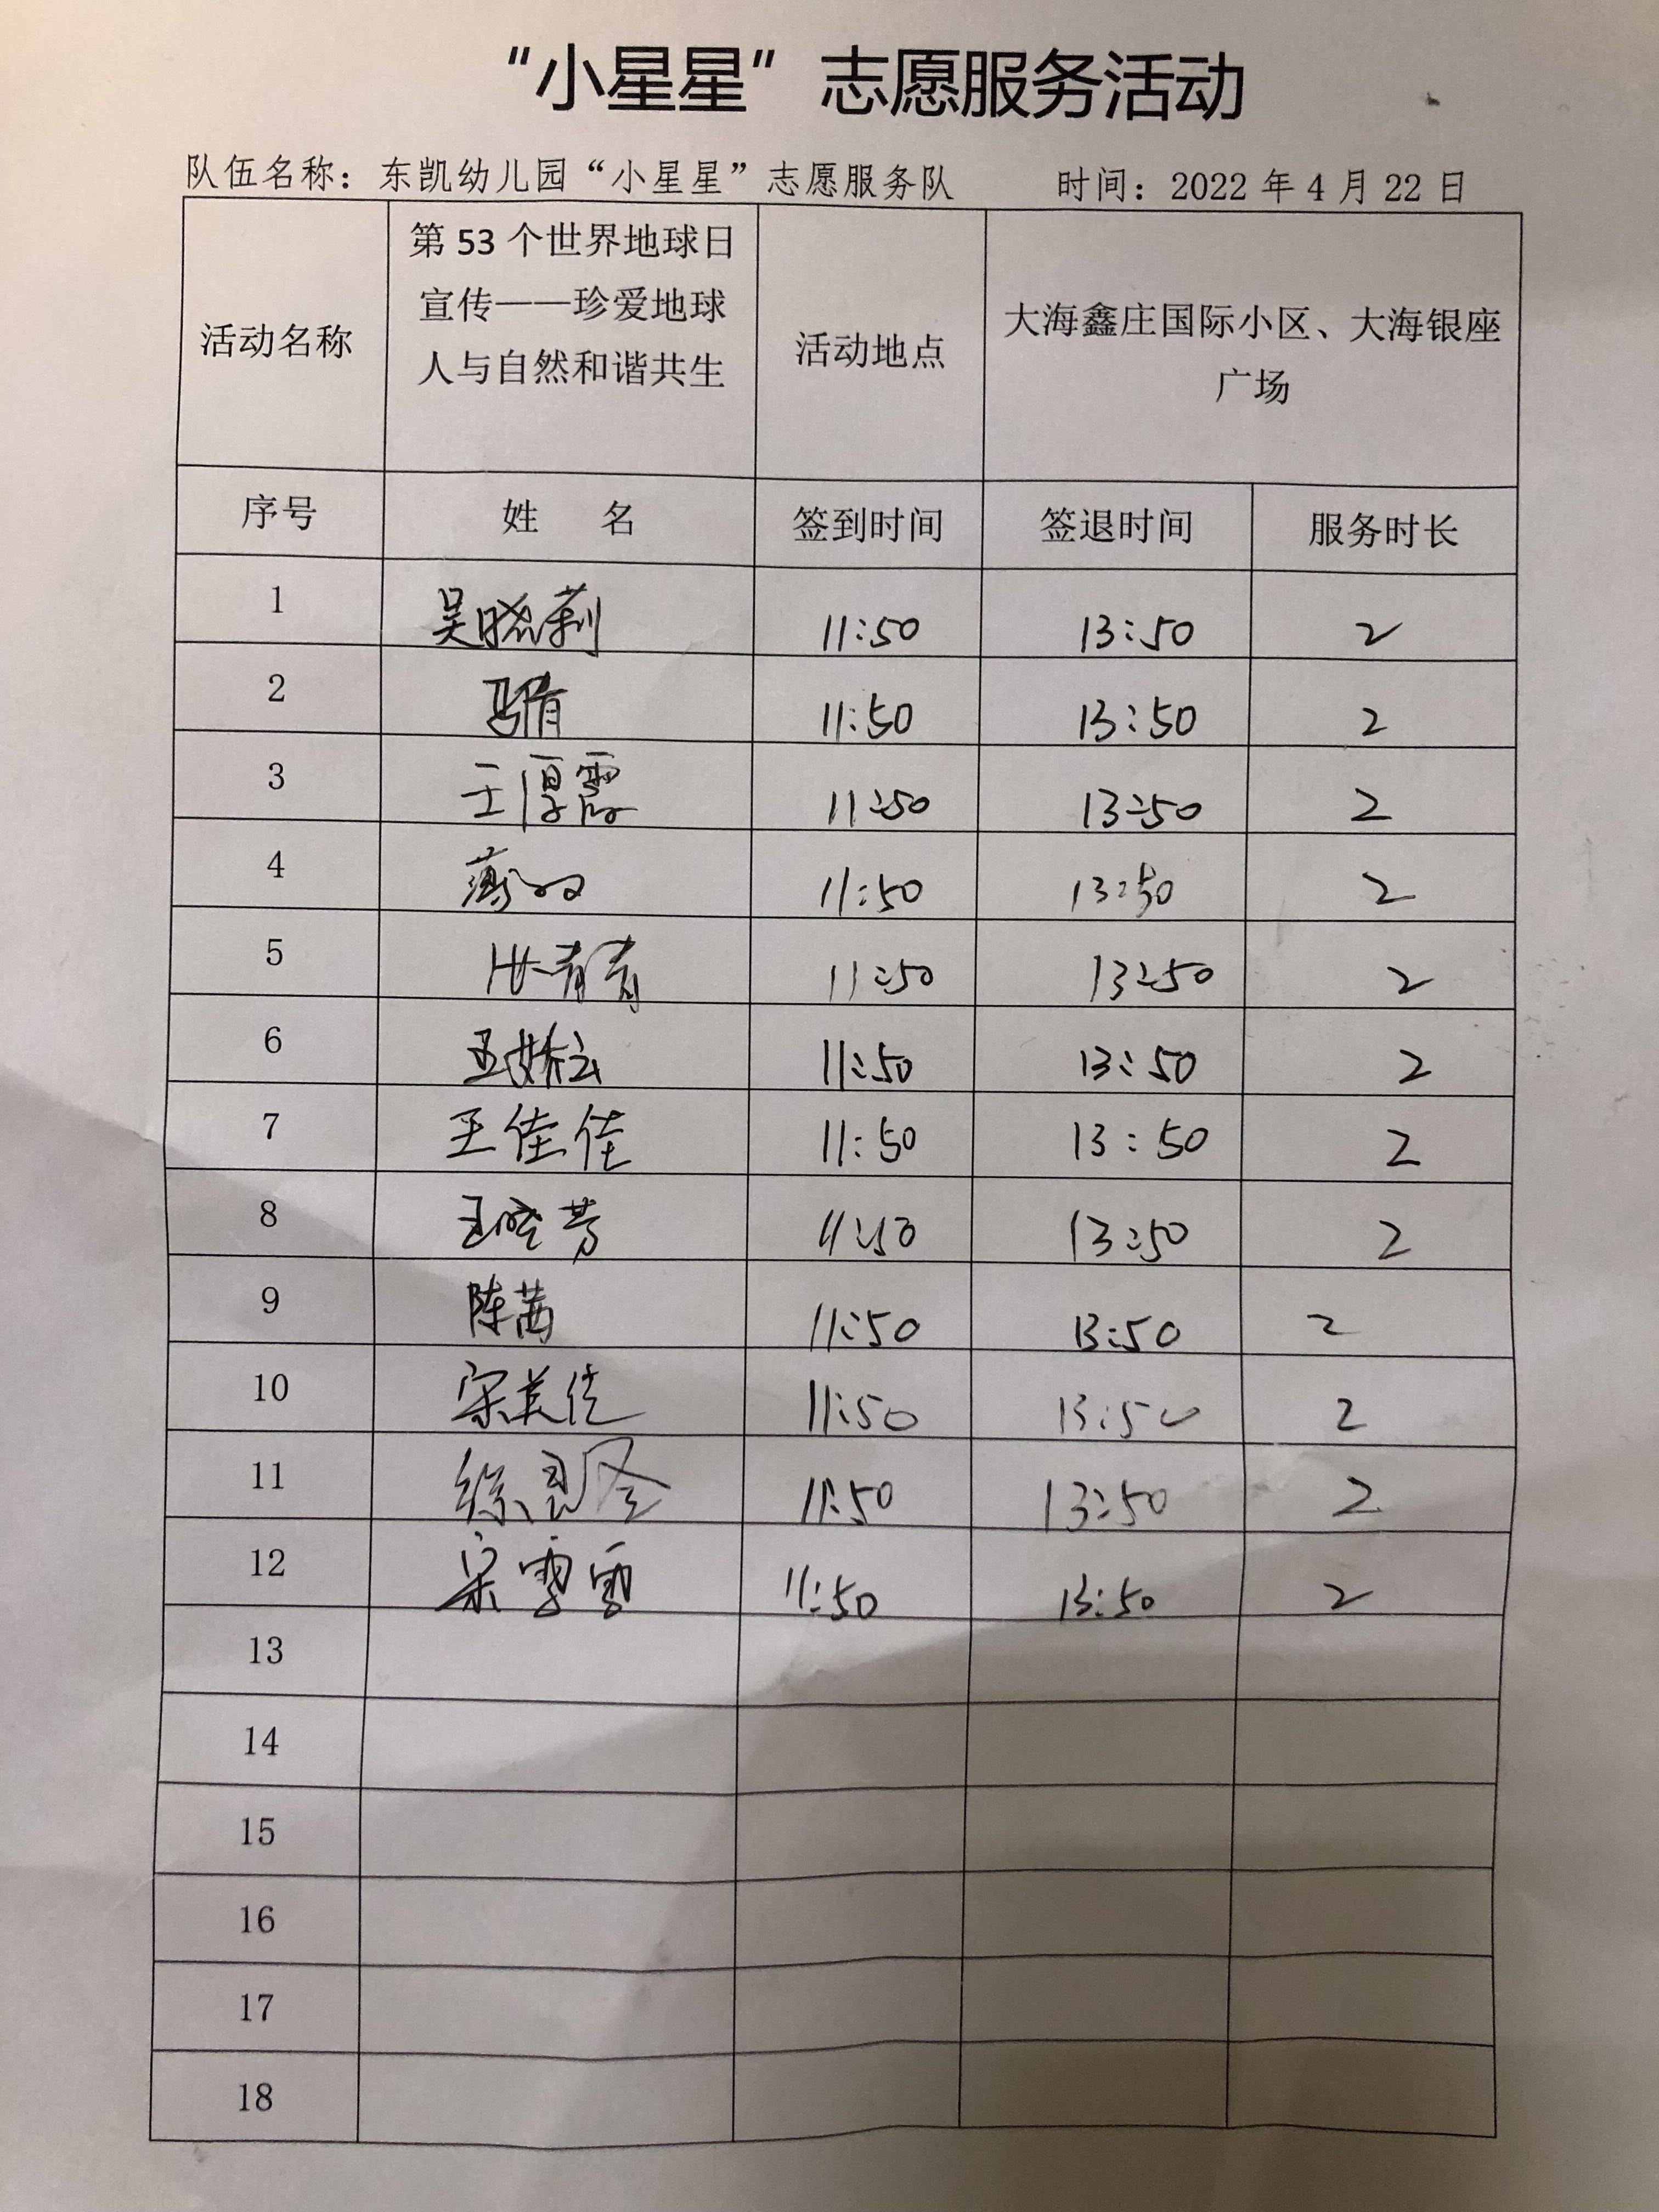 “小星星”志愿服务活动
队伍名称：东凯幼儿园“小星星”志愿服务队 时间：2022 年 4 月 22 日
活动名称
第 53 个世界地球日
宣传——珍爱地球
人与自然和谐共生
活动地点
大海鑫庄国际小区、大海银座
广场
序号 姓 名 签到时间 签退时间 服务时长
1 吴晓莉 11:50 13:50 2
2 11:50 13:50 2
3 王厚霞 11:50 13:50 2
4 11:50 13:50 2
5 11:50 13:50 2
6 11:50 13:50 2
7 王佳佳 11:50 13:50 2
8 王晓芳 11:50 13:50 2
9 陈茜 11:50 13:50 2
10 宋美佳 11:50 13:50 2
11 11:50 13:50 2
12 宋雪雪 11:50 13:50 2
13
14
15
16
17
18